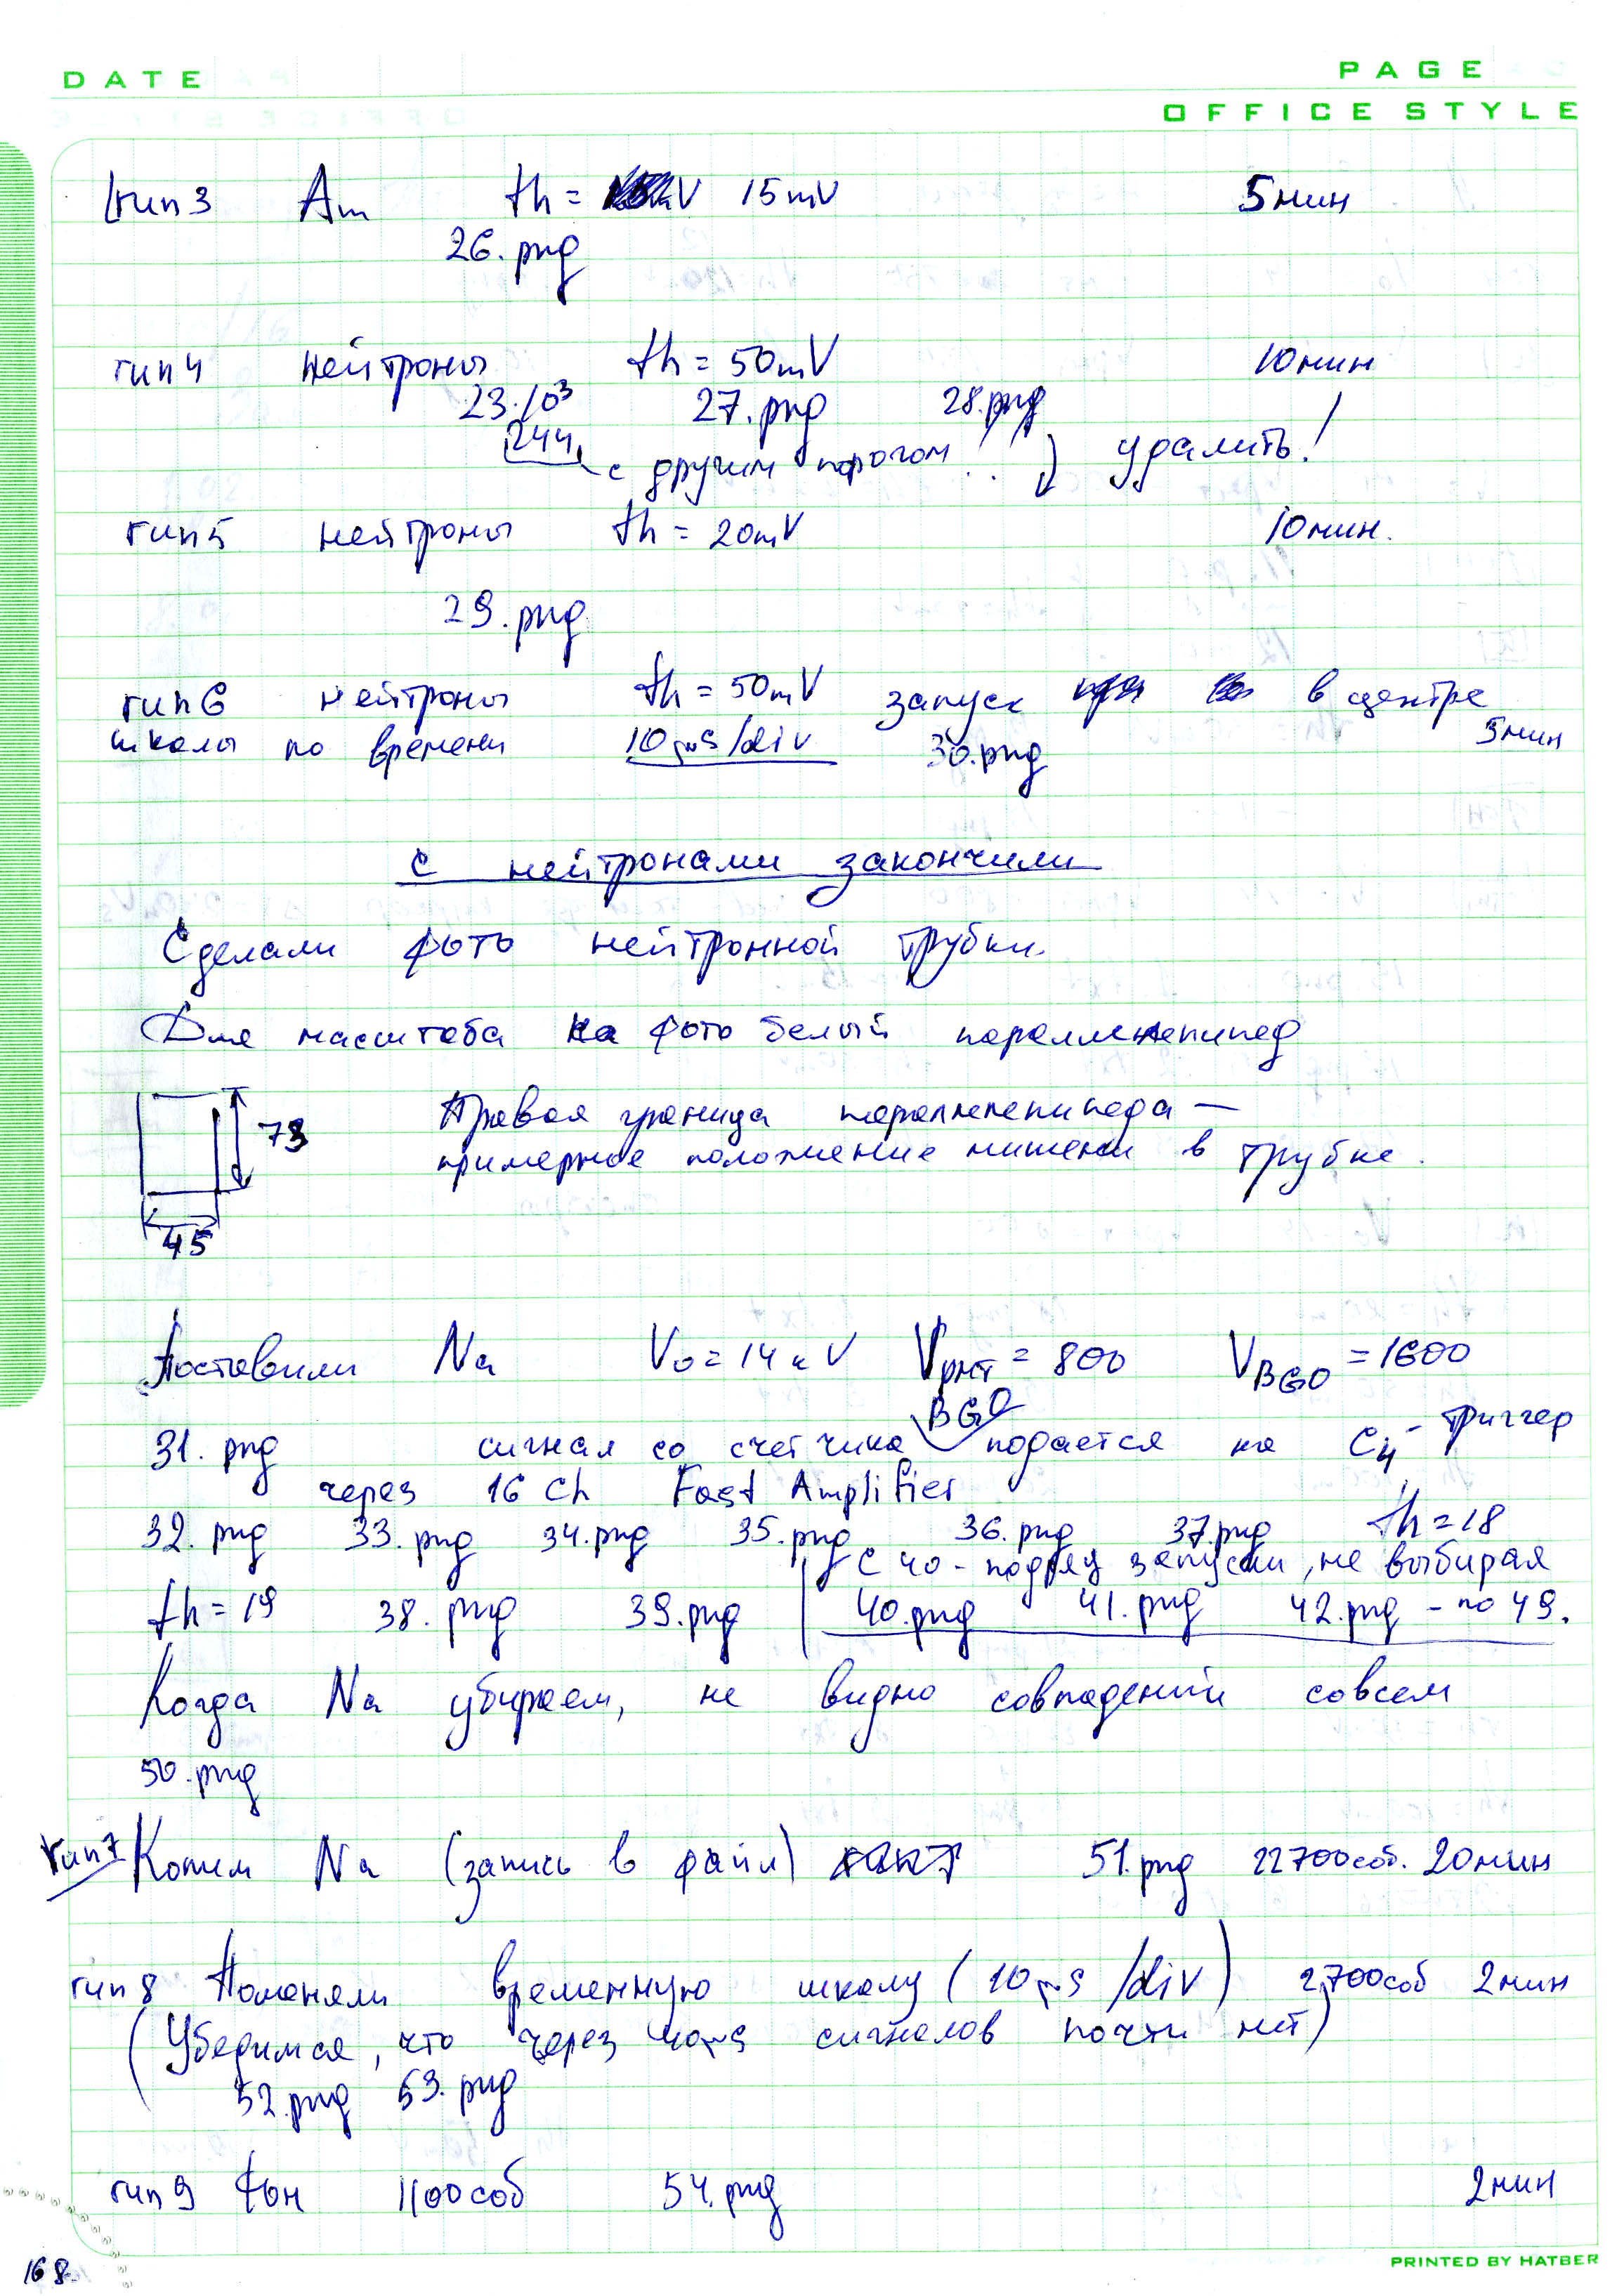 DATE PAGE
OFFICE STYLE
run3 Am th = 15mV 5мин
26.png
run4 нейтроны th = 50mV 10мин
23·10³ 27.png 28.png
244 с другим порогом! удалить!
run5 нейтроны th = 20mV 10мин.
29.png
run6 нейтроны th = 50mV запуск в центре
шкалы по времени 10μs/div 30.png 5мин
с нейтронами закончили
Сделали фото нейтронной трубки.
Для масштаба на фото белый параллелепипед
73
45
Правая граница параллелепипеда —
примерное положение мишени в трубке.
Поставили Na V₀ = 14kV V_PMT = 800 V_BGO = 1600
BGO
31.png сигнал со счетчика подается на C4 - триггер
через 16 Ch Fast Amplifier
32.png 33.png 34.png 35.png 36.png 37.png th = 18
с 40 - подряд запуски, не выбирая
th = 19 38.png 39.png 40.png 41.png 42.png - по 49.
Когда Na убираем, не видно совпадений совсем
50.png
run7 Копим Na (запись в файл) 51.png 22700соб. 20мин
run8 Поменяли временную шкалу (10μs/div) 2700соб 2мин
(Убедимся, что через 40μs сигналов почти нет)
52.png 53.png
run9 Фон 1100соб 54.png 2мин
168.
PRINTED BY HATBER